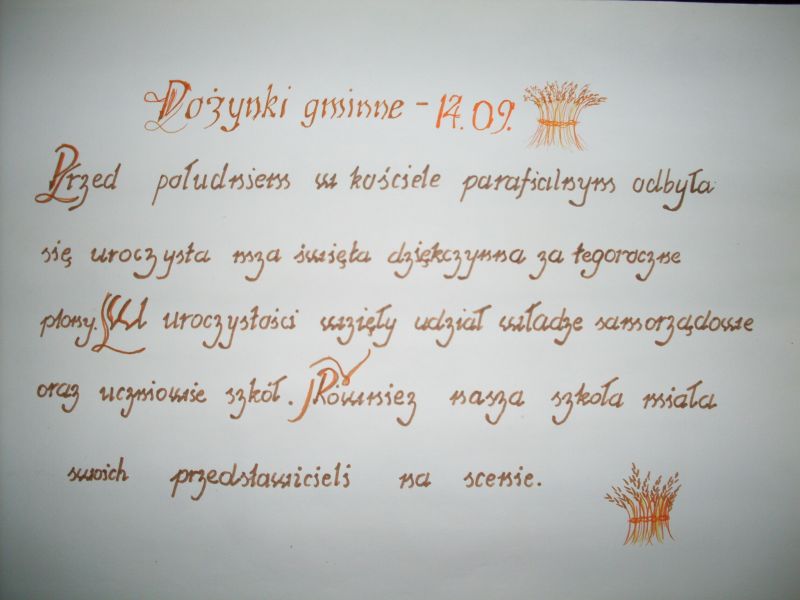 Dożynki gminne - 14.09.
Przed południem w kościele parafialnym odbyła
się uroczysta msza święta dziękczynna za tegoroczne
plony. W uroczystości wzięły udział władze samorządowe
oraz uczniowie szkół. Również nasza szkoła miała
swoich przedstawicieli na scenie.